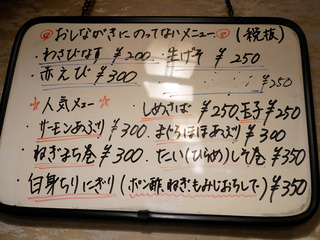 おしながきにのってないメニュー (税抜)
・わさびなす ¥200 ・生げそ ¥250
・赤えび ¥300 ¥250
☆人気メニュー☆ ・しめさば ¥250 玉子 ¥250
・サーモンあぶり ¥300 ・まぐろほほあぶり ¥300
・ねぎまち巻 ¥300 ・たい(ひらめ)しそ巻 ¥350
・白身ちりにぎり (ポン酢、ねぎ、もみじおろして) ¥350